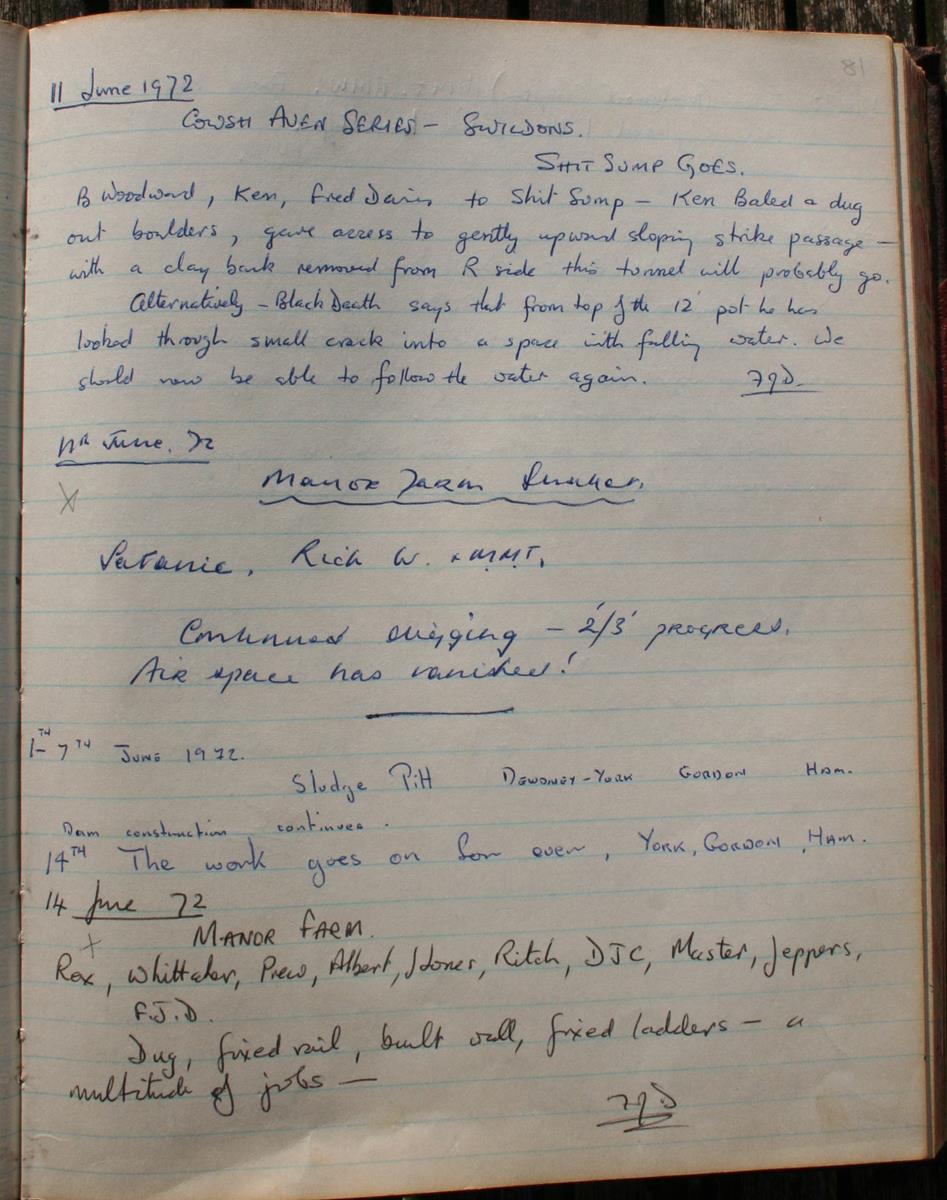 81
11 June 1972
COWSH AVEN SERIES - SWILDONS.
SHIT SUMP GOES.
B Woodward, Ken, Fred Davies to Shit Sump - Ken Baled & dug
out boulders, gave access to gently upward sloping strike passage -
with a clay bank removed from R side this tunnel will probably go.
Alternatively - Black Death says that from top of the 12' pot he has
looked through small crack into a space with falling water. We
should now be able to follow the water again. FJD.
June. 72
X
Manor Farm Swallet.
Satanic, Rich W. & M.M.T.
Continued digging - 2'/3' progress.
Air space has vanished!
7TH JUNE 1972.
Sludge Pitt DEWDNEY-YORK GORDON HAM.
Dam construction continues.
14TH The work goes on for ever, YORK, GORDON, HAM.
14 June 72
X
MANOR FARM.
Rex, Whittaker, Prew, Albert, Ritch, DJC, Master, Jeppers,
F.J.D.
Dug, fixed rail, built wall, fixed ladders - a
multitude of jobs -
FJD